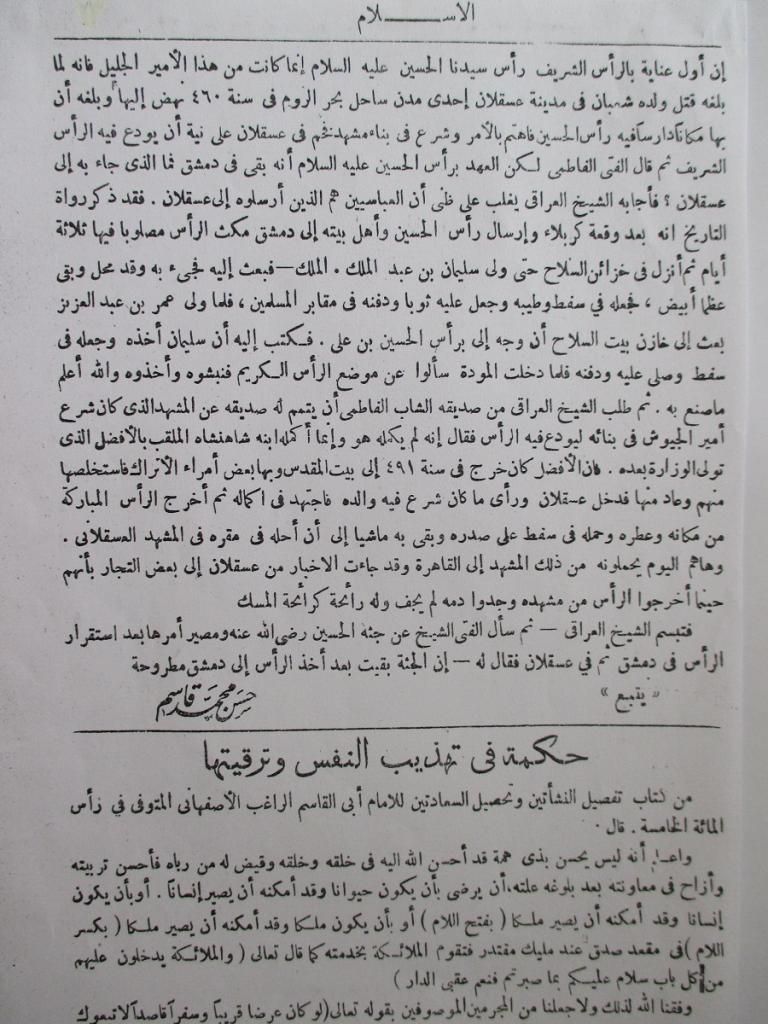 الاســـــلام
إن أول عناية بالرأس الشريف رأس سيدنا الحسين عليه السلام إنما كانت من هذا الأمير الجليل فانه لما
بلغه قتل ولده شعبان فى مدينة عسقلان إحدى مدن ساحل بحر الروم فى سنة ٤٦٠ نهض إليها وبلغه أن
بها مكانا دارسا فيه رأس الحسين فاهتم بالأمر وشرع فى بناء مشهد فخم فى عسقلان على نية أن يودع فيه الرأس
الشريف ثم قال الفتى الفاطمى لكن العهد برأس الحسين عليه السلام أنه بقى فى دمشق فما الذى جاء به إلى
عسقلان ؟ فأجابه الشيخ العراقى يغلب على ظنى أن العباسيين هم الذين أرسلوه إلى عسقلان . فقد ذكر رواة
التاريخ انه بعد وقعة كربلاء وإرسال رأس الحسين وأهل بيته إلى دمشق مكث الرأس مصلوبا فيها ثلاثة
أيام ثم أنزل فى خزائن السلاح حتى ولى سليمان بن عبد الملك . الملك — فبعث إليه فجىء به وقد محل وبقى
عظما أبيض ، فجعله في سفط وطيبه وجعل عليه ثوبا ودفنه فى مقابر المسلمين ، فلما ولى عمر بن عبد العزيز
بعث إلى خازن بيت السلاح أن وجه إلى برأس الحسين بن على . فكتب إليه أن سليمان أخذه وجعله فى
سفط وصلى عليه ودفنه فلما دخلت المودة سألوا عن موضع الرأس الكريم فنبشوه وأخذوه والله أعلم
ماصنع به . ثم طلب الشيخ العراقى من صديقه الشاب الفاطمى أن يتمم له صديقه عن المشهد الذى كان شرع
أمير الجيوش فى بنائه ليودع فيه الرأس فقال إنه لم يكمله هو وإنما أكمله ابنه شاهنشاه الملقب بالأفضل الذى
تولى الوزارة بعده . فان الأفضل كان خرج فى سنة ٤٩١ إلى بيت المقدس وبها بعض أمراء الأتراك فاستخلصها
منهم وعاد منها فدخل عسقلان ورأى ما كان شرع فيه والده فاجتهد فى اكماله ثم أخرج الرأس المباركة
من مكانه وعطره وحمله فى سفط على صدره وبقى به ماشيا إلى أن أحله فى مقره فى المشهد العسقلانى .
وهاهم اليوم يحملونه من ذلك المشهد إلى القاهرة وقد جاءت الاخبار من عسقلان إلى بعض التجار بأنهم
حينما أخرجوا الرأس من مشهده وجدوا دمه لم يجف وله رائحة كرائحة المسك
فتبسم الشيخ العراقى — ثم سأل الفتى الشيخ عن جثة الحسين رضى الله عنه ومصير أمرها بعد استقرار
الرأس فى دمشق ثم في عسقلان فقال له — إن الجثة بقيت بعد أخذ الرأس إلى دمشق مطروحة
« يتبع » حسن محمد قاسم
حكمة فى تهذيب النفس وترقيتها
من كتاب تفصيل النشأتين وتحصيل السعادتين للامام أبى القاسم الراغب الأصفهانى المتوفى في رأس
المائة الخامسة . قال .
واعلم أنه ليس يحسن بذى همة قد أحسن الله اليه فى خلقه وخلقه وقيض له من رباه فأحسن تربيته
وأزاح فى معاونته بعد بلوغه علته، أن يرضى بأن يكون حيوانا وقد أمكنه أن يصير إنسانا . أو بأن يكون
إنسانا وقد أمكنه أن يصير ملكا ( بفتح اللام ) أو بأن يكون ملكا وقد أمكنه أن يصير ملكا ( بكسر
اللام ) فى مقعد صدق عند مليك مقتدر فتقوم الملائكة بخدمته كما قال تعالى ( والملائكة يدخلون عليهم
من كل باب سلام عليكم بما صبرتم فنعم عقبى الدار )
وفقنا الله لذلك ولا جعلنا من المجرمين الموصوفين بقوله تعالى ( لو كان عرضا قريبا وسفرا قاصدا لاتبعوك